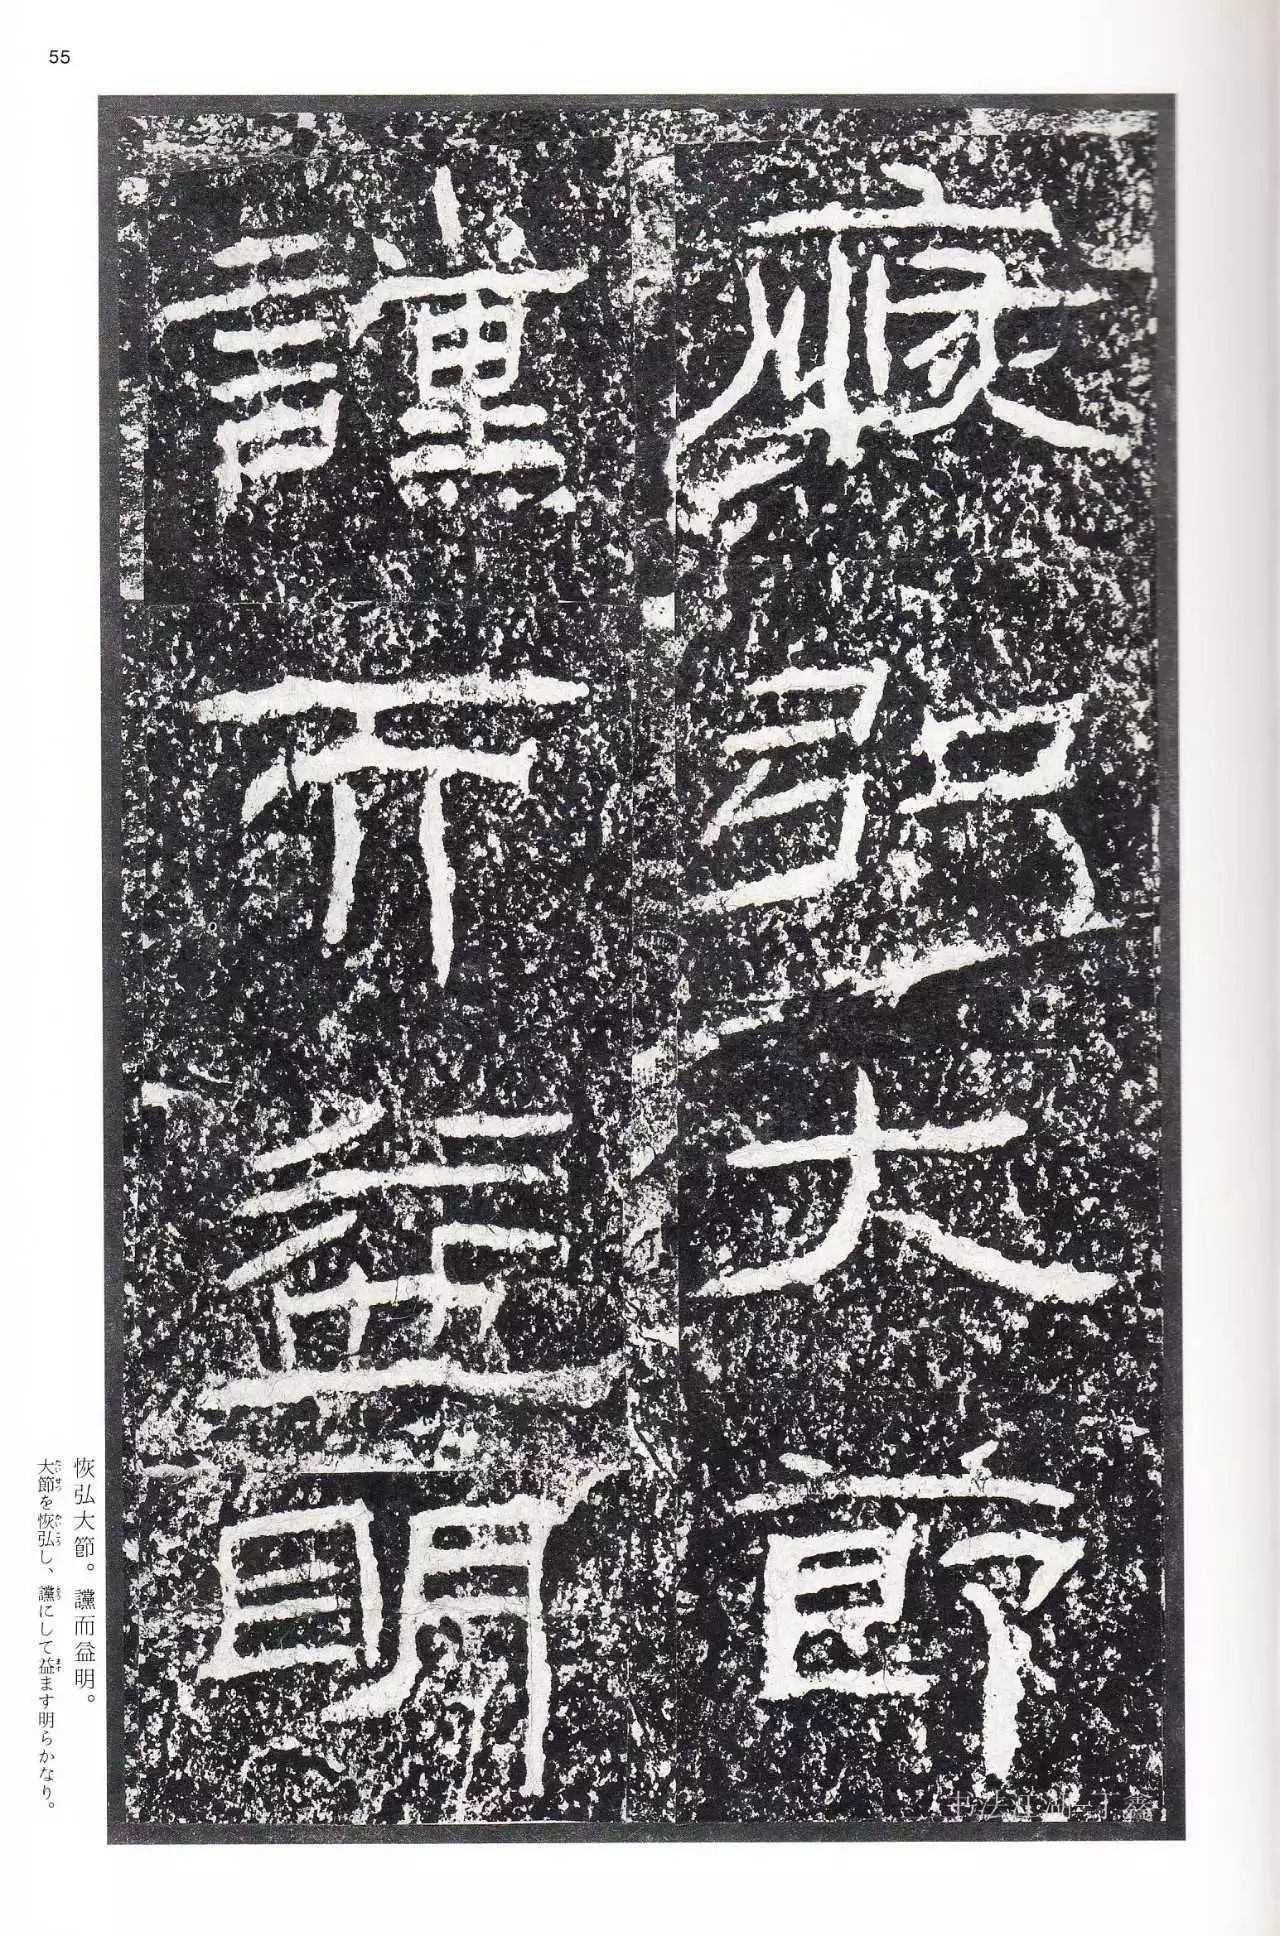 55
恢弘大節
讜而益明
恢弘大節。讜而益明。
大節を恢弘し、讜にして益ます明らかなり。
书法江湖-丁鑫